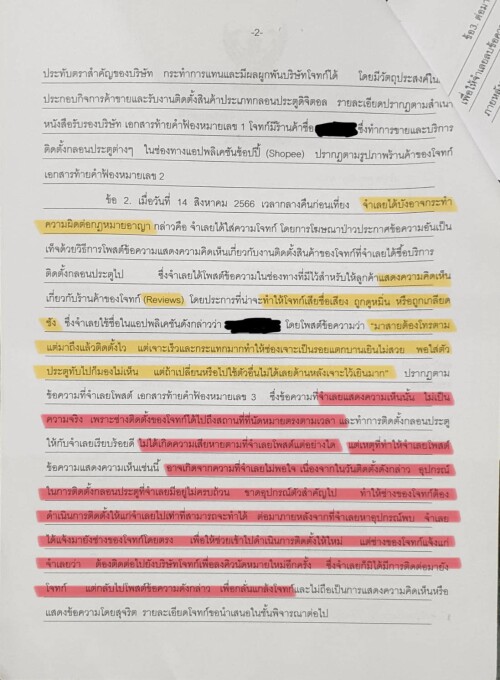 -2-
ประทับตราสำคัญของบริษัท กระทำการแทนและมีผลผูกพันบริษัทโจทก์ได้ โดยมีวัตถุประสงค์ใน
ประกอบกิจการค้าขายและรับงานติดตั้งสินค้าประเภทกลอนประตูดิจิตอล รายละเอียดปรากฏตามสำเนา
หนังสือรับรองบริษัท เอกสารท้ายคำฟ้องหมายเลข 1 โจทก์มีร้านค้าชื่อ ซึ่งทำการขายและบริการ
ติดตั้งกลอนประตูต่างๆ ในช่องทางแอปพลิเคชันช้อปปี้ (Shopee) ปรากฏตามรูปภาพร้านค้าของโจทก์
เอกสารท้ายคำฟ้องหมายเลข 2
ข้อ 2. เมื่อวันที่ 14 สิงหาคม 2566 เวลากลางคืนก่อนเที่ยง จำเลยได้บังอาจกระทำ
ความผิดต่อกฎหมายอาญา กล่าวคือ จำเลยได้ใส่ความโจทก์ โดยการโฆษณาป่าวประกาศข้อความอันเป็น
เท็จด้วยวิธีการโพสต์ข้อความแสดงความคิดเห็นเกี่ยวกับงานติดตั้งสินค้าของโจทก์ที่จำเลยได้ซื้อบริการ
ติดตั้งกลอนประตูไป ซึ่งจำเลยได้โพสต์ข้อความในช่องทางที่มีไว้สำหรับให้ลูกค้าแสดงความคิดเห็น
เกี่ยวกับร้านค้าของโจทก์ (Reviews) โดยประการที่น่าจะทำให้โจทก์เสียชื่อเสียง ถูกดูหมิ่น หรือถูกเกลียด
ชัง ซึ่งจำเลยใช้ชื่อในแอปพลิเคชันดังกล่าวว่า โดยโพสต์ข้อความว่า "มาสายต้องโทรตาม
แต่มาถึงแล้วติดตั้งไว แต่เจาะเร็วและกระแทกมากทำให้ช่องเจาะเป็นรอยแตกบานเยินไม่สวย พอใส่ตัว
ประตูทับไปก็มองไม่เห็น แต่ถ้าเปลี่ยนหรือไปใช้ตัวอื่นไม่ได้เลยด้านหลังเจาะไว้เยินมาก" ปรากฏตาม
ข้อความที่จำเลยโพสต์ เอกสารท้ายคำฟ้องหมายเลข 3 ซึ่งข้อความที่จำเลยแสดงความเห็นนั้น ไม่เป็น
ความจริง เพราะช่างติดตั้งของโจทก์ได้ไปถึงสถานที่ที่นัดหมายตรงตามเวลา และทำการติดตั้งกลอนประตู
ให้กับจำเลยเรียบร้อยดี ไม่ได้เกิดความเสียหายตามที่จำเลยโพสต์แต่อย่างใด แต่เหตุที่ทำให้จำเลยโพสต์
ข้อความแสดงความเห็นเช่นนี้ อาจเกิดจากความที่จำเลยไม่พอใจ เนื่องจากในวันติดตั้งดังกล่าว อุปกรณ์
ในการติดตั้งกลอนประตูที่จำเลยมีอยู่ไม่ครบถ้วน ขาดอุปกรณ์ตัวสำคัญไป ทำให้ช่างของโจทก์ต้อง
ดำเนินการติดตั้งให้แก่จำเลยไปเท่าที่สามารถจะทำได้ ต่อมาภายหลังจากที่จำเลยหาอุปกรณ์พบ จำเลย
ได้แจ้งมายังช่างของโจทก์โดยตรง เพื่อให้ช่วยเข้าไปดำเนินการติดตั้งให้ใหม่ แต่ช่างของโจทก์แจ้งแก่
จำเลยว่า ต้องติดต่อไปยังบริษัทโจทก์เพื่อลงคิวนัดหมายใหม่อีกครั้ง ซึ่งจำเลยก็มิได้มีการติดต่อมายัง
โจทก์ แต่กลับไปโพสต์ข้อความดังกล่าว เพื่อกลั่นแกล้งโจทก์และไม่ถือเป็นการแสดงความคิดเห็นหรือ
แสดงข้อความโดยสุจริต รายละเอียดโจทก์ขอนำเสนอในชั้นพิจารณาต่อไป
ข้อ3. ต่อมา
เพื่อให้จำเลยลบข้อค
ภายหลัง